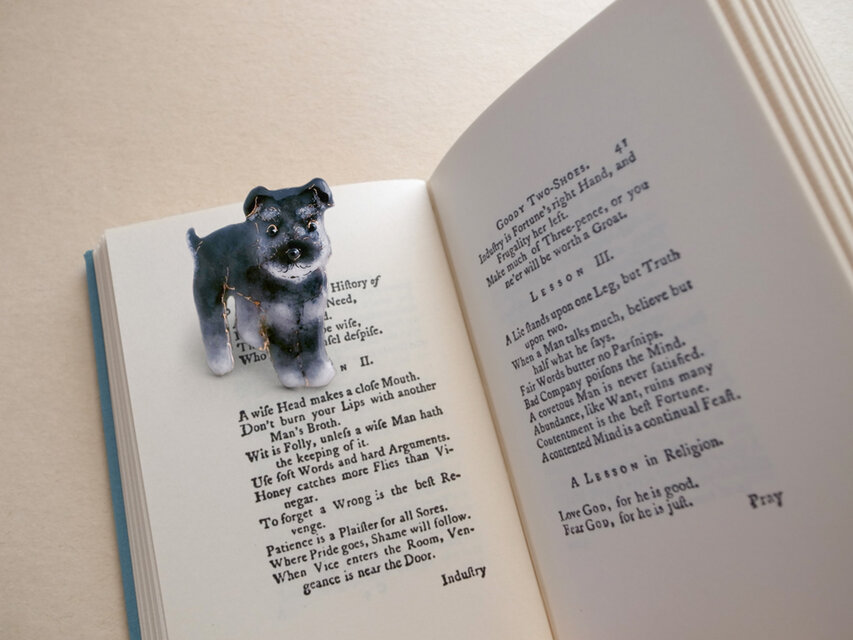 Hiſtory of
Need,
d.
be wiſe,
ſel deſpiſe.
Who
N II.
A wiſe Head makes a cloſe Mouth.
Don't burn your Lips with another
Man's Broth.
Wit is Folly, unleſs a wiſe Man hath
the keeping of it.
Uſe ſoft Words and hard Arguments.
Honey catches more Flies than Vi-
negar.
To forget a Wrong is the beſt Re-
venge.
Patience is a Plaiſter for all Sores.
Where Pride goes, Shame will follow.
When Vice enters the Room, Ven-
geance is near the Door.
Induſtry
GOODY TWO-SHOES. 41
Induſtry is Fortune's right Hand, and
Frugality her left.
Make much of Three-pence, or you
ne'er will be worth a Groat.
LESSON III.
A Lie ſtands upon one Leg, but Truth
upon two.
When a Man talks much, believe but
half what he ſays.
Fair Words butter no Parſnips.
Bad Company poiſons the Mind.
A covetous Man is never ſatisfied.
Abundance, like Want, ruins many
Contentment is the beſt Fortune.
A contented Mind is a continual Feaſt.
A LESSON in Religion.
Love GOD, for he is good.
Fear GOD, for he is juſt.
Pray